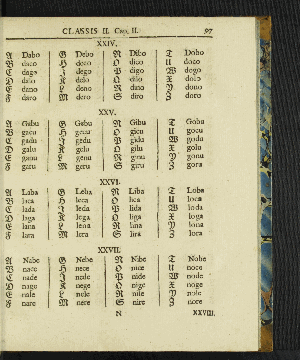 CLASSIS II. CAP. II. 97
XXIV.
A Dabo | G Debo | N Dibo | T Dobo
B daco | H deco | O dico | U doco
C dago | J dego | P digo | W dogo
D dalo | K delo | Q dilo | X dolo
E dano | L deno | R dino | Y dono
F daro | M dero | S diro | Z doro
XXV.
A Gabu | G Gebu | N Gibu | T Gobu
B gacu | H gecu | O gicu | U gocu
C gadu | J gedu | P gidu | W godu
D galu | K gelu | Q gilu | X golu
E ganu | L genu | R ginu | Y gonu
F garu | M geru | S giru | Z goru
XXVI.
A Laba | G Leba | N Liba | T Loba
B laca | H leca | O lica | U loca
C lada | J leda | P lida | W loda
D laga | K lega | Q liga | X loga
E lana | L lena | R lina | Y lona
F lara | M lera | S lira | Z lora
XXVII.
A Nabe | G Nebe | N Nibe | T Nobe
B nace | H nece | O nice | U noce
C nade | J nede | P nide | W node
D nage | K nege | Q nige | X noge
E nale | L nele | R nile | Y nole
F nare | M nere | S nire | Z nore
N XXVIII.